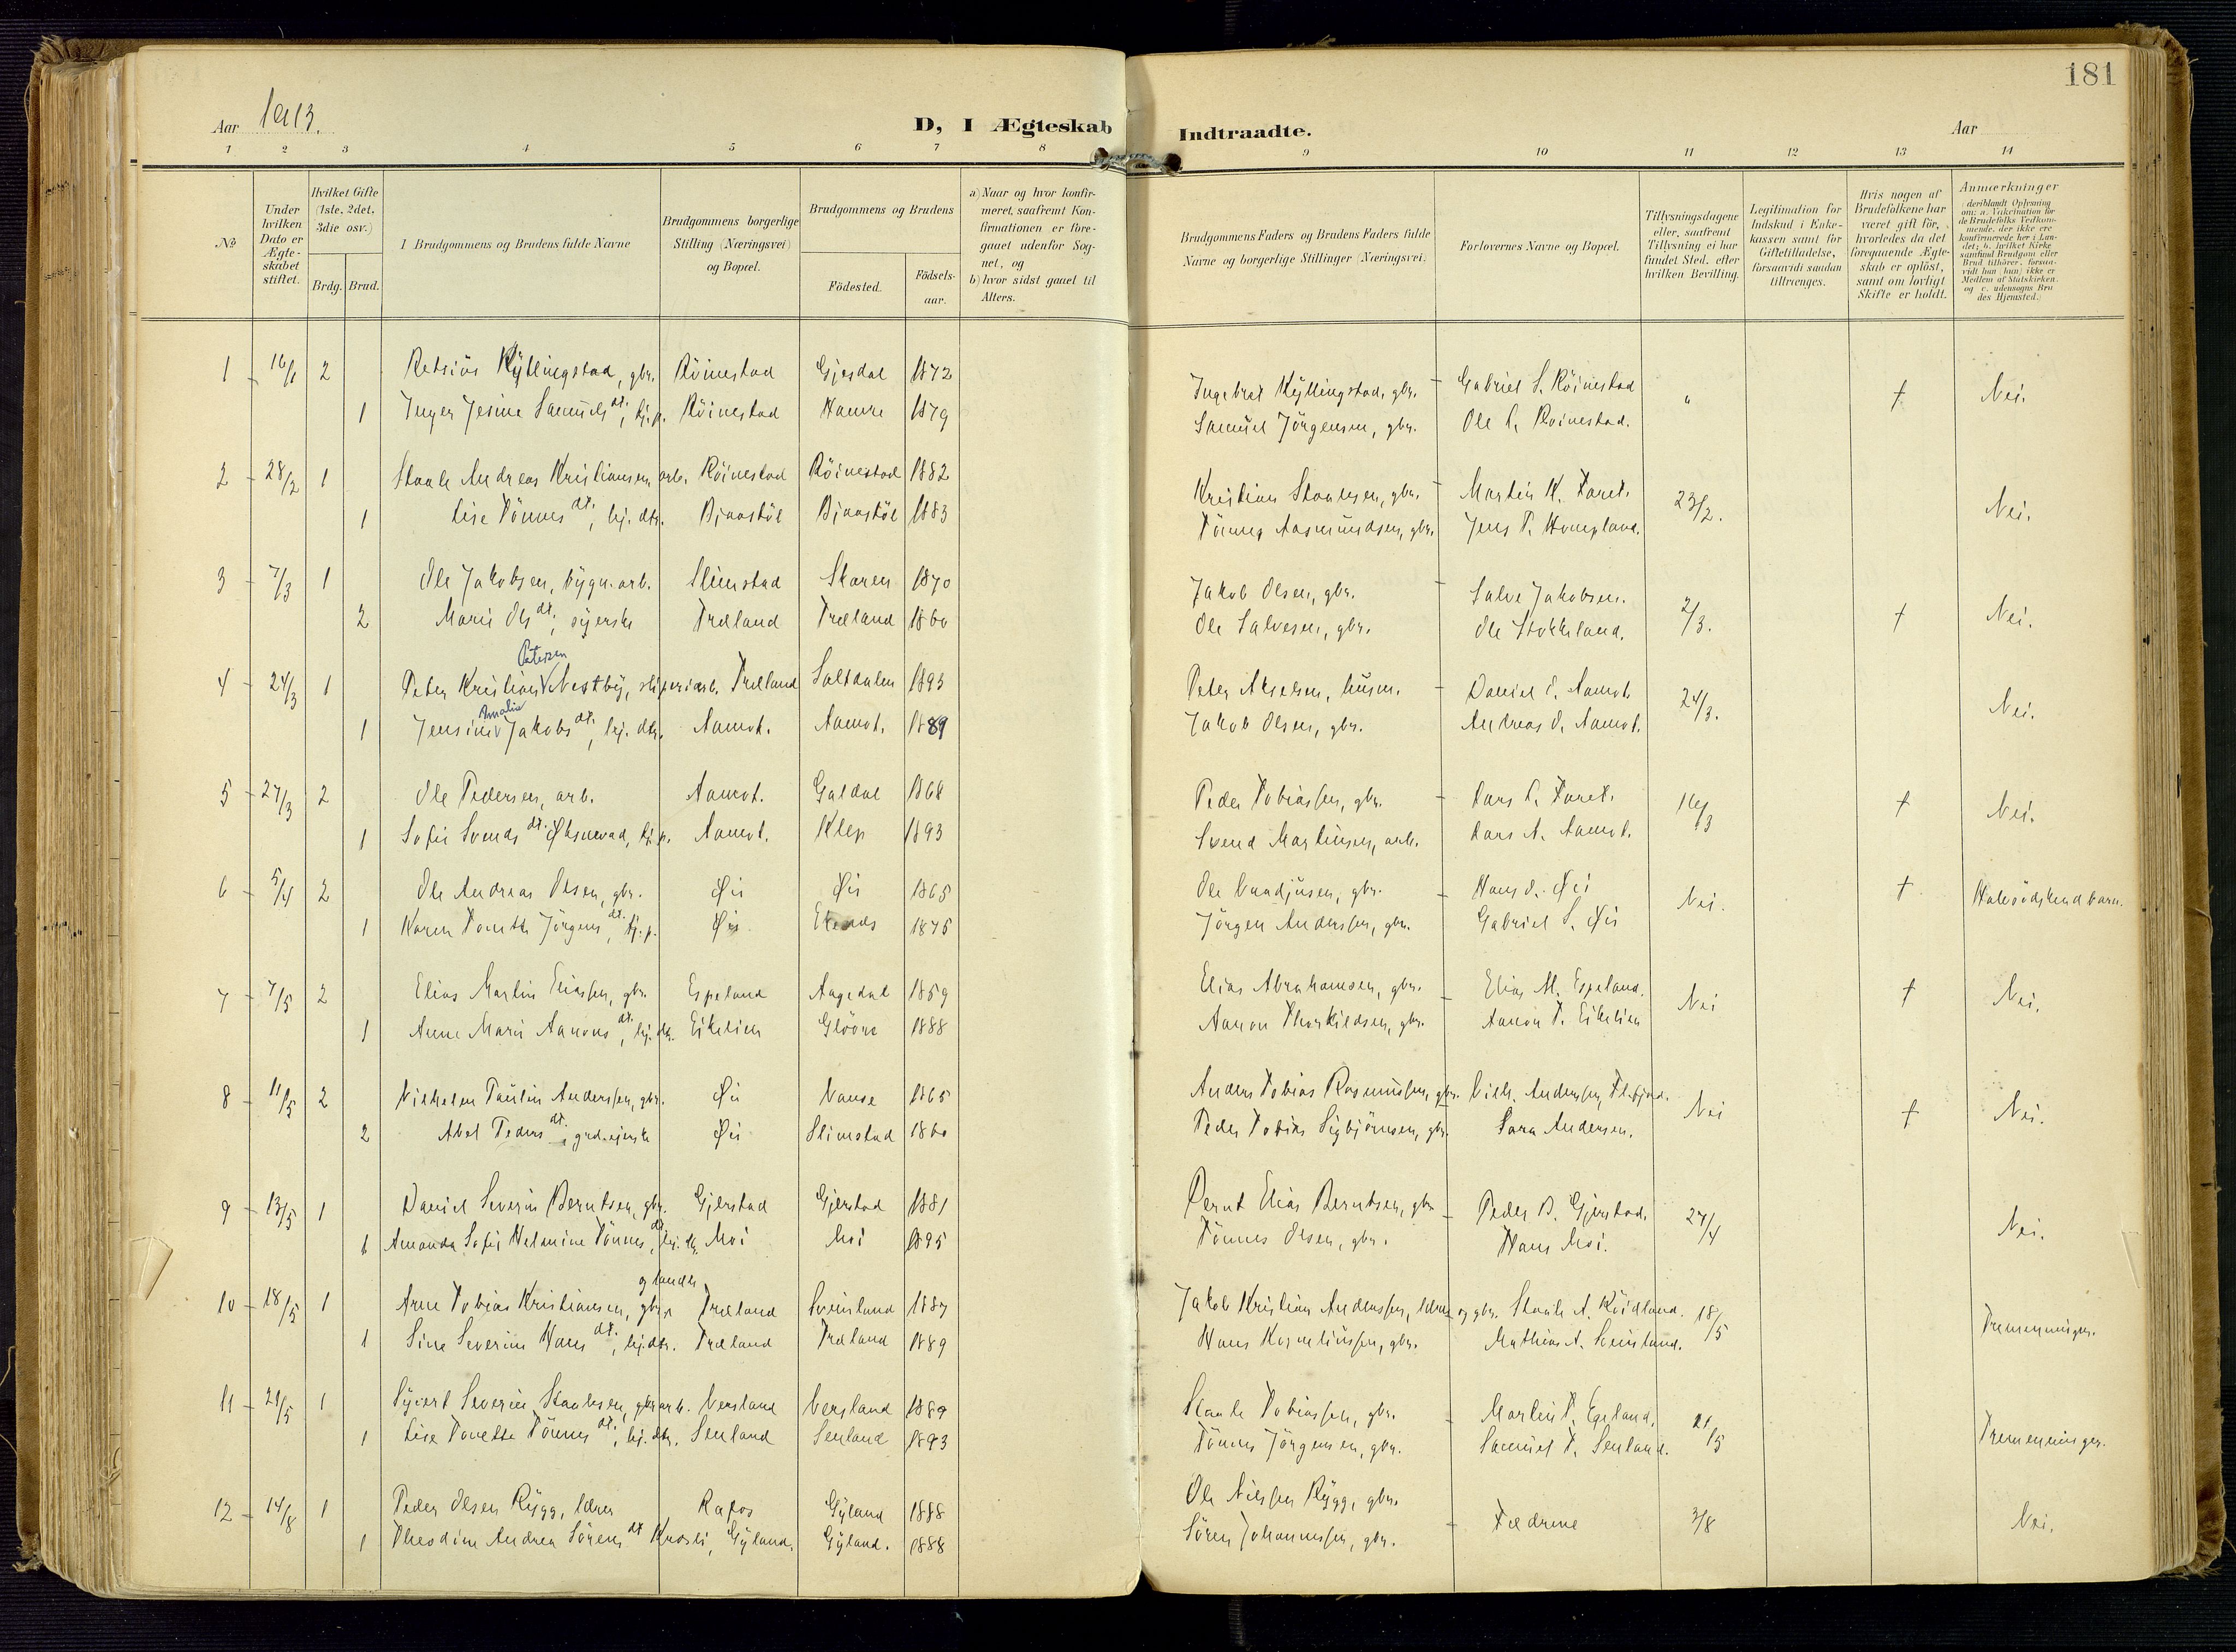 181
Aar 1913.
D, I Ægteskab Indtraadte.
Aar
1 2 3 4 5 6 7 8 9 10 11 12 13 14
№
Under hvilken Dato er Ægteskabet stiftet.
Hvilket Gifte (1ste, 2det, 3die osv.)
Brdg. Brud.
1 Brudgommens og Brudens fulde Navne
Brudgommens borgerlige Stilling (Næringsvei) og Bopæl.
Brudgommens og Brudens
Födested.
Födselsaar.
a) Naar og hvor konfirmeret, saafremt Konfirmationen er foregaaet udenfor Sognet, og
b) hvor sidst gaaet til Alters.
Brudgommens Faders og Brudens Faders fulde Navne og borgerlige Stillinger (Næringsvei.
Forlovernes Navne og Bopæl.
Tillysningsdagene eller, saafremt Tillysning ei har fundet Sted, efter hvilken Bevilling.
Legitimation for Indskud i Enkekassen samt for Giftetilladelse, forsaavidt saadan tiltrænges.
Hvis nogen af Brudefolkene har været gift för, hvorledes da det foregaaende Ægteskab er oplöst, samt om lovligt Skifte er holdt.
Anmærkninger
1 16/1 2 Kyllingstad, gbr. Röinestad Gjesdal 1872 Ingebret Kyllingstad, gbr. – Gabriel S. Röinestad " † Nei.
1 Inger Jesine Samuels dt., Röinestad 1879 Samuel Jörgensen, gbr. Ole Roinestad.
2 – 28/2 1 Staale Andreas Kristiansen arb. Röinestad Röinestad 1882 Kristian Staalesen, gbr. – Martin K. 23/2. Nei.
1 Lise Tönnes dt., hj. dtr. Bjaastöl Bjaastöl 1883 Tönnes Aasmundsen, gbr. Jens T. Hompland.
3 – 7/3 1 Ole Jakobsen, bygn. arb. Slimstad Skaren 1870 Jakob Olsen, gbr. – Salve Jakobsen. 2/3. † Nei.
2 Marie Ols dt., syerske Træland Træland 1860 Ole Salvesen, gbr. Ole Stokkeland.
Petersen
4 – 24/3 1 Peter Kristian V Nestby, Træland Saltdalen 1893 Peter Akselsen, husm. – Daniel O. Aamot. 24/3. Nei.
Amalie
1 Jensine V Jakobs dt., hj. dtr. Aamot. Aamot. 1889 Jakob Olsen, gbr. Andreas O. Aamot.
5 – 27/3 2 Ole Pedersen, arb. Aamot. Galdal 1868 Peder Tobiassen, gbr. – Lars 16/3 † Nei.
1 Sofie Svends dt. Öksnevad, tj. p. Aamot. Klep 1893 Svend Martinsen, arb. Lars A. Aamot.
6 – 5/4 2 Ole Andreas Olsen, gbr. Öie Öie 1865 Ole gbr. – Hans O. Öie Nei. † Halvsödskendbarn.
1 Karen Tomette Jörgens dt., tj. p. Öie 1875 Jörgen Anderssen, gbr. Gabriel S. Öie
7 – 7/5 2 Elias Martin Eliassen, gbr. Espeland Aagedal 1859 Elias Abrahamsen, gbr. – Elias M. Espeland. Nei † Nei.
1 Anne Marie Aanons dt., hj. dtr. Eikelien 1888 Aanon Thorkildsen, gbr. Aanon T. Eikelien
8 – 11/5 2 Vilhelm Paulin Anderssen, gbr. Öie Vanse 1865 Anders Tobias Rasmussen, gbr. Vilh. Anderssen, Nei † Nei.
2 Abel Peders dt., grd. ejerske Öie Slimstad 1860 Peder Tobias Sigbjörnsen, gbr. Sara Andersen.
9 – 13/5 1 Daniel Severin Berntsen, gbr. Gjerstad Gjerstad 1881 Bernt Elias Berntsen, gbr. – Peder B. Gjerstad. 27/4 Nei.
1 Amanda Sofie Helmine Tönnes dt., Moi Moi 1895 Tönnes Olsen, gbr. Hans Moi.
og landh
10 – 18/5 1 Arne Tobias Kristiansen, Træland Sveinland 1887 Jakob Kristian Anderssen, lærer og gbr. Staale A. Röidland. 18/5 Tremenninger.
1 Sine Severine Hans dt., hj. dtr. Træland Træland 1889 Hans Korneliussen, gbr. Mathias A. Sveinland.
11 – 21/5 1 Syvert Severin Staalesen, Versland Versland 1889 Staale Tobiassen, gbr. – Martin T. Egeland. 21/5 Tremenninger.
1 Lise Tonette Tönnes dt., hj. dtr. Senland Senland 1893 Tönnes Jörgensen, gbr. Samuel T. Senland.
12 – 14/8 1 Peder Olsen Rygg, lærer Rafos Gyland 1888 Ole Nilssen Rygg, gbr. – Fædrene 3/8 Nei.
1 Thosdine Andrea Sörens dt Krosli, Gyland. Gyland. 1888 Sören Johannessen, gbr.